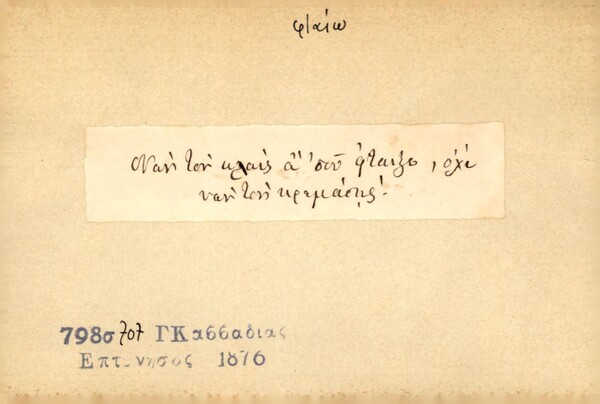 φταίω
Νανὴ τον κλαὶς ἂ' 'σου φταιξε, ὀχὲ
νανὴ τονὴ κρεμάσῃς!
798σ 707 ΓΚασσαδιας
Επτ.νησος 1876